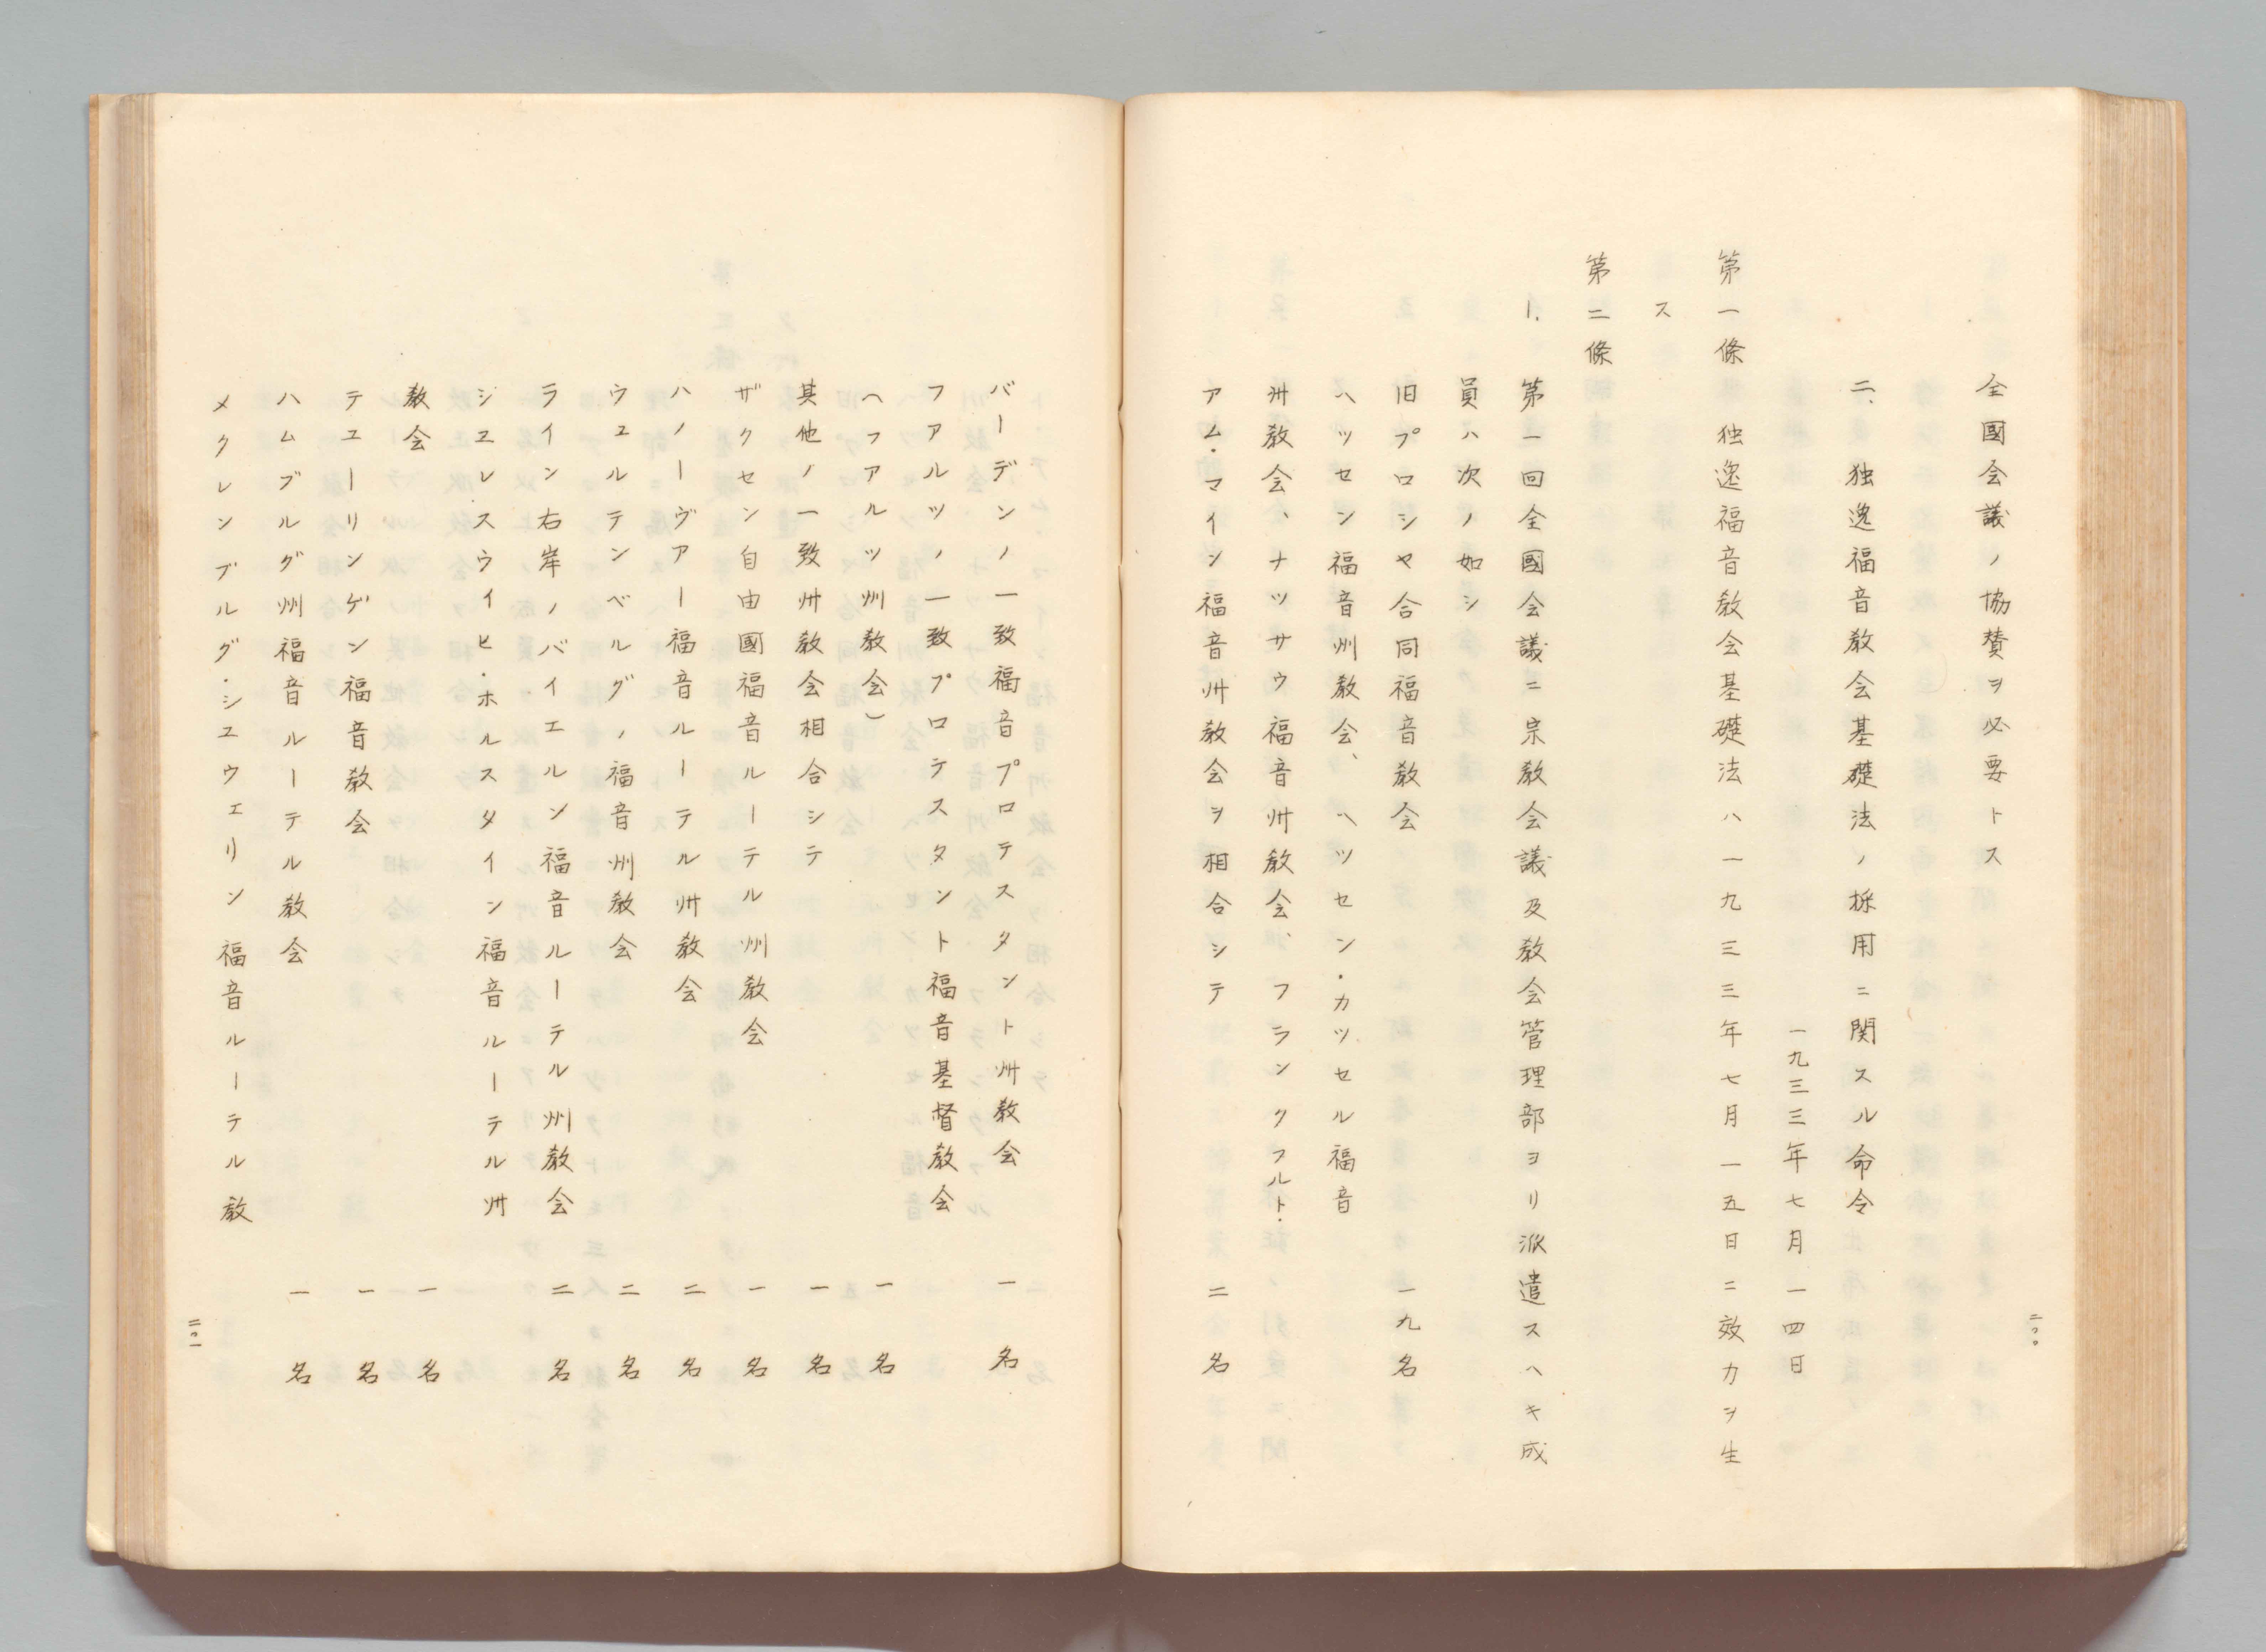 全國会議ノ協賛ヲ必要トス
二、独逸福音教会基礎法ノ採用ニ関スル命令
一九三三年七月一四日
第一條 独逸福音教会基礎法ハ一九三三年七月一五日ニ効力ヲ生
ス
第二條
1. 第一回全國会議ニ宗教会議及教会管理部ヨリ派遣スヘキ成
員ハ次ノ如シ
旧プロシヤ合同福音教会 一九名
ヘッセン福音州教会、ヘッセン・カッセル福音
州教会、ナッサウ福音州教会、フランクフルト・
アム・マイン福音州教会ヲ相合シテ 二名
二〇〇
バーデンノ一致福音プロテスタント州教会 一名
フアルツノ一致プロテスタント福音基督教会
(フアルツ州教会) 一名
其他ノ一致州教会相合シテ 一名
ザクセン自由國福音ルーテル州教会 一名
ハノーヴアー福音ルーテル州教会 二名
ウュルテンベルグノ福音州教会 二名
ライン右岸ノバイエルン福音ルーテル州教会 二名
シエレスウイヒ・ホルスタイン福音ルーテル州
教会 一名
テューリンゲン福音教会 一名
ハムブルグ州福音ルーテル教会 一名
メクレンブルグ・シユウェリン福音ルーテル教
二〇一